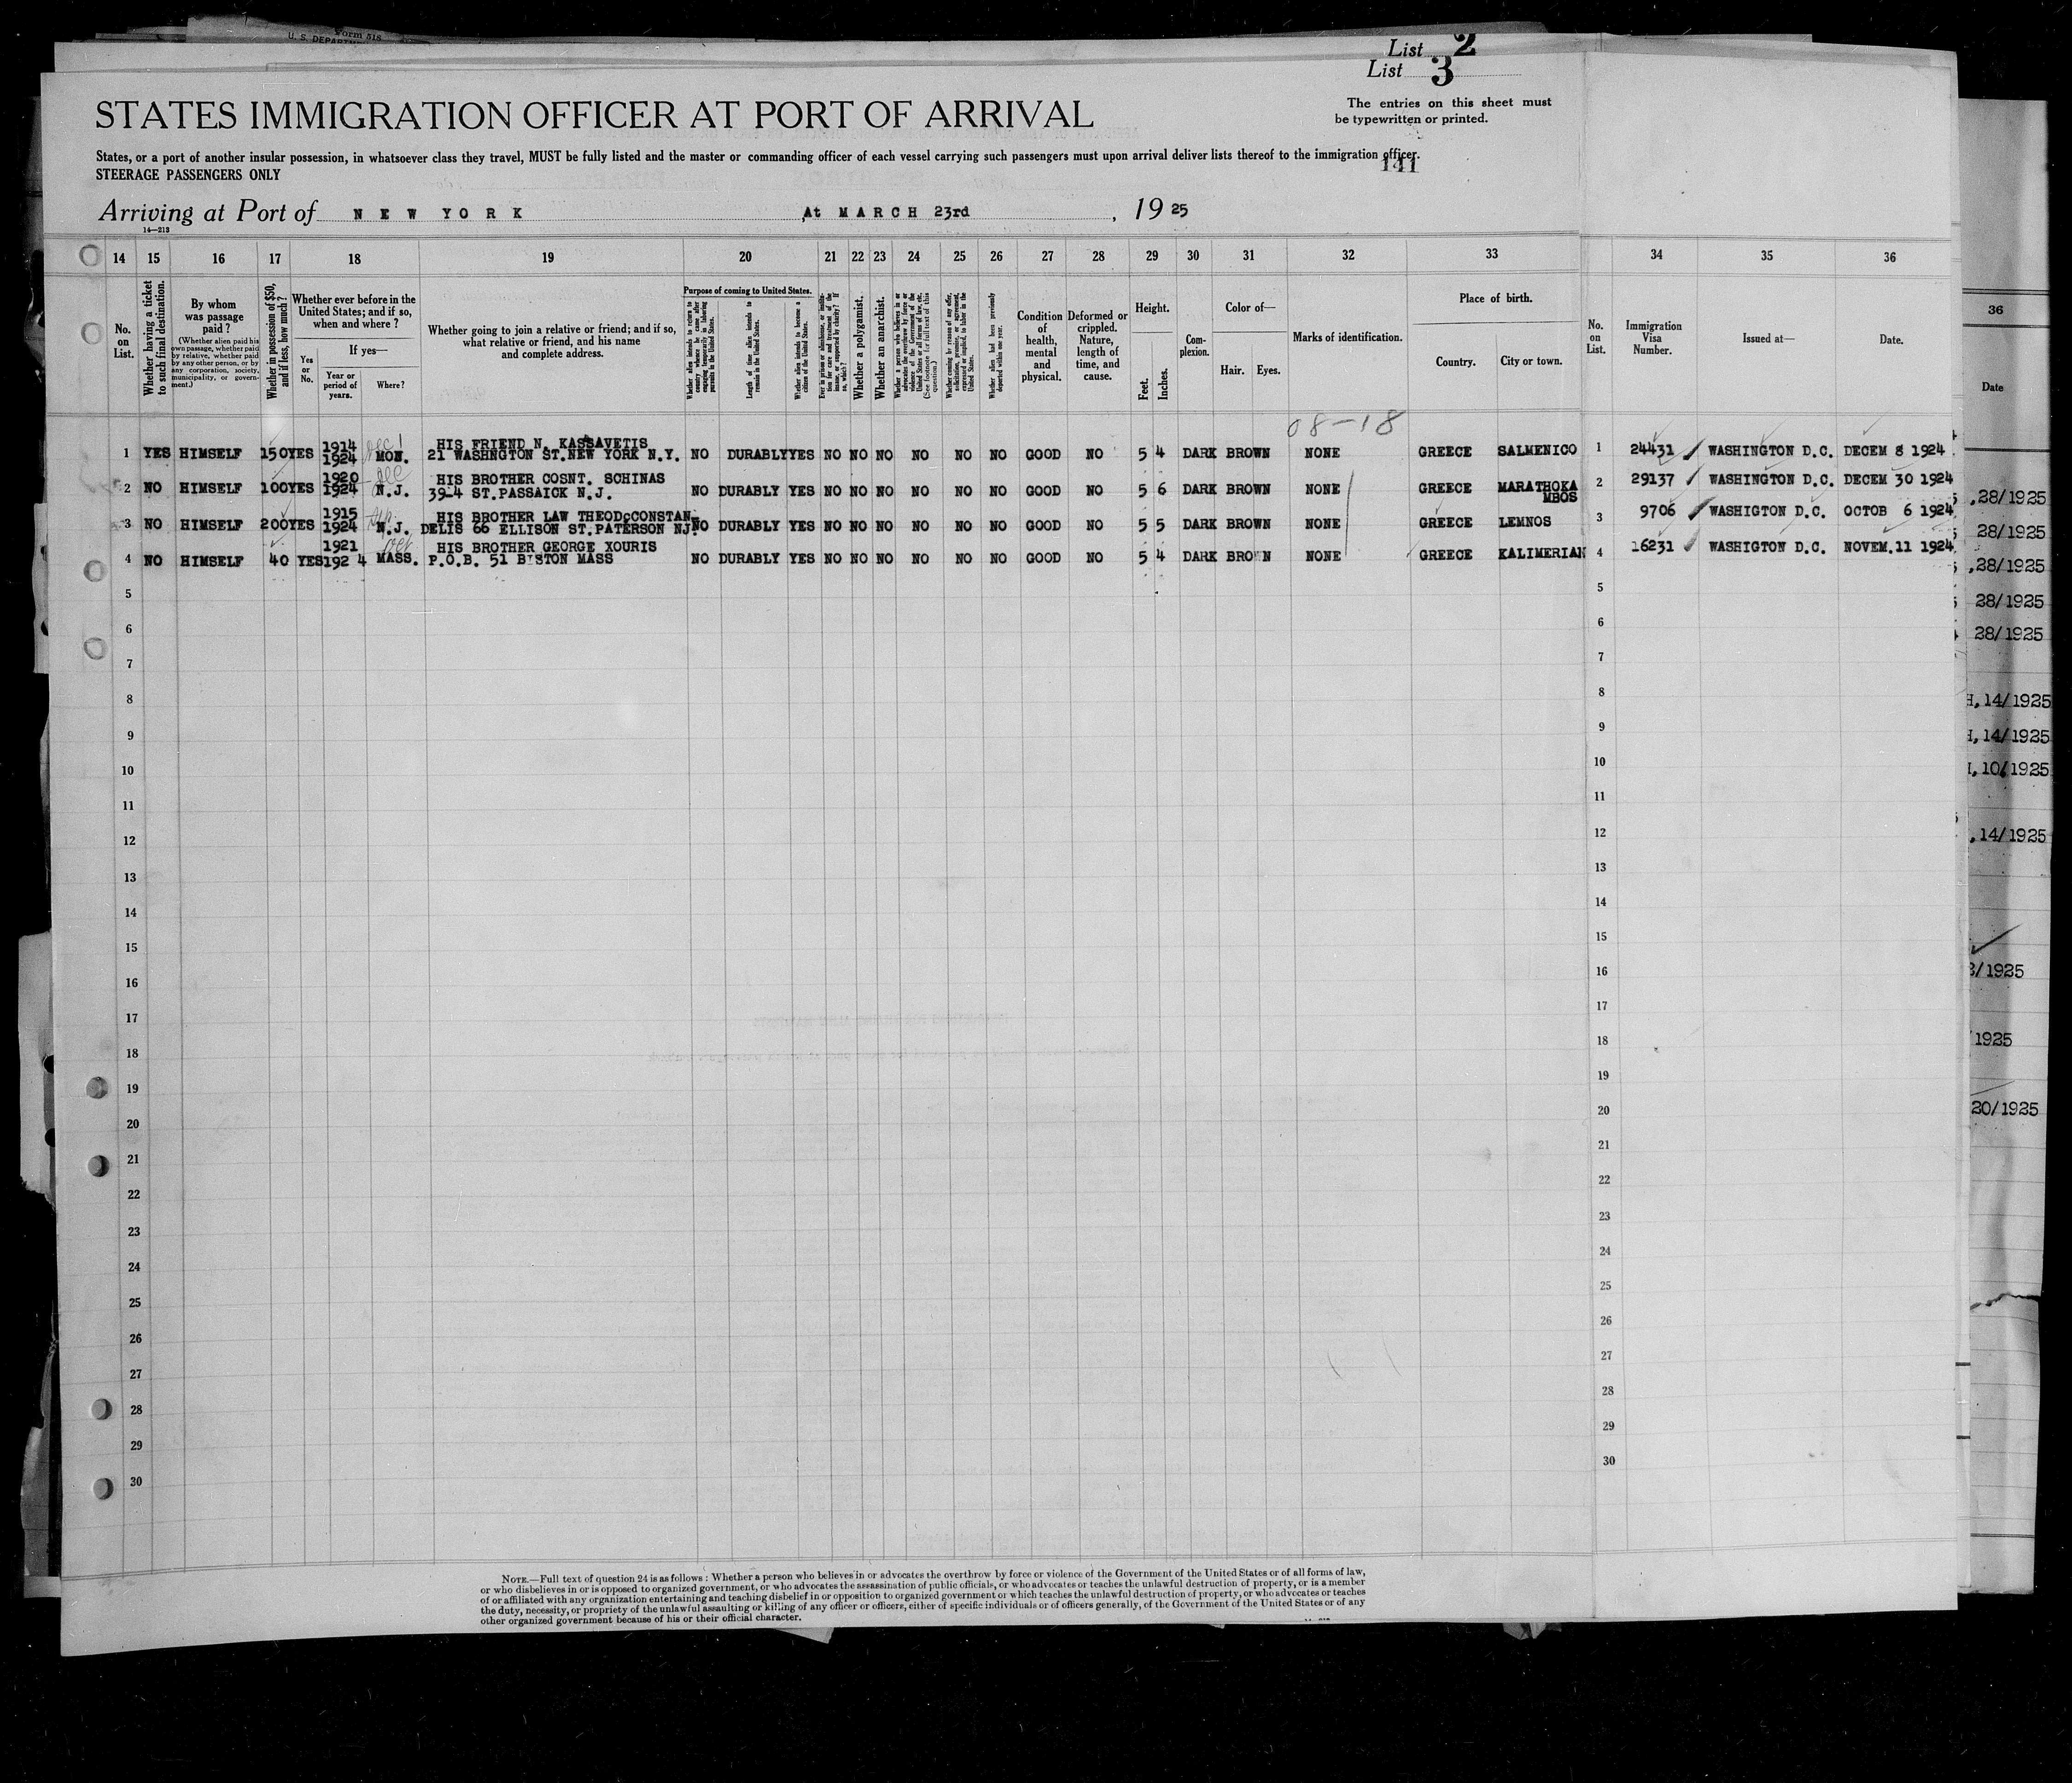 Form 518
U. S. DEPARTM
List 2
List 3
The entries on this sheet must
be typewritten or printed.
STATES IMMIGRATION OFFICER AT PORT OF ARRIVAL
States, or a port of another insular possession, in whatsoever class they travel, MUST be fully listed and the master or commanding officer of each vessel carrying such passengers must upon arrival deliver lists thereof to the immigration officer.
141
STEERAGE PASSENGERS ONLY
Arriving at Port of NEW YORK, At MARCH 23rd, 19 25
14—213
14 15 16 17 18 19 20 21 22 23 24 25 26 27 28 29 30 31 32 33 34 35 36
No. on List.
Whether having a ticket to such final destination.
By whom was passage paid?
(Whether alien paid his own passage, whether paid by relative, whether paid by any other person, or by any corporation, society, municipality, or government.)
Whether in possession of $50, and if less, how much?
Whether ever before in the United States; and if so, when and where?
If yes—
Yes or No.
Year or period of years.
Where?
Whether going to join a relative or friend; and if so, what relative or friend, and his name and complete address.
Purpose of coming to United States.
Whether alien intends to return to country whence he came after engaging temporarily in laboring pursuits in the United States.
Length of time alien intends to remain in the United States.
Whether alien intends to become a citizen of the United States.
Ever in prison or almshouse, or institution for care and treatment of the insane, or supported by charity? If so, which?
Whether a polygamist.
Whether an anarchist.
Whether a person who believes in or advocates the overthrow by force or violence of the Government of the United States or all forms of law, etc. (See footnote for full text of this question.)
Whether coming by reason of any offer, solicitation, promise, or agreement, expressed or implied, to labor in the United States.
Whether alien had been previously deported within one year.
Condition of health, mental and physical.
Deformed or crippled. Nature, length of time, and cause.
Height.
Feet. Inches.
Complexion.
Color of—
Hair. Eyes.
Marks of identification.
Place of birth.
Country. City or town.
No. on List.
Immigration Visa Number.
Issued at—
Date.
36
Date
08-18
1 YES HIMSELF 150 YES 1914 1924 Dec MON. HIS FRIEND N. KASSAVETIS 21 WASHNGTON ST.NEW YORK N.Y. NO DURABLY YES NO NO NO NO NO NO GOOD NO 5 4 DARK BROWN NONE GREECE SALMENICO 1 24431 WASHINGTON D.C. DECEM 8 1924
2 NO HIMSELF 100 YES 1920 1924 Dec N.J. HIS BROTHER COSNT. SCHINAS 39-4 ST.PASSAICK N.J. NO DURABLY YES NO NO NO NO NO NO GOOD NO 5 6 DARK BROWN NONE GREECE MARATHOKA MBOS 2 29137 WASHINGTON D.C. DECEM 30 1924
3 NO HIMSELF 200 YES 1915 1924 N.J. HIS BROTHER LAW THEOD.CONSTAN DELIS 66 ELLISON ST.PATERSON NJ. NO DURABLY YES NO NO NO NO NO NO GOOD NO 5 5 DARK BROWN NONE GREECE LEMNOS 3 9706 WASHIGTON D.C. OCTOB 6 1924
4 NO HIMSELF 40 YES 1921 192 4 Oct MASS. HIS BROTHER GEORGE XOURIS P.O.B. 51 B STON MASS NO DURABLY YES NO NO NO NO NO NO GOOD NO 5 4 DARK BROWN NONE GREECE KALIMERIAN 4 16231 WASHIGTON D.C. NOVEM.11 1924
5 5
6 6
7 7
8 8
9 9
10 10
11 11
12 12
13 13
14 14
15 15
16 16
17 17
18 18
19 19
20 20
21 21
22 22
23 23
24 24
25 25
26 26
27 27
28 28
29 29
30 30
,28/1925
28/1925
,28/1925
28/1925
28/1925
H,14/1925
H,14/1925
H,10/1925
,14/1925
3/1925
/1925
20/1925
NOTE.—Full text of question 24 is as follows: Whether a person who believes in or advocates the overthrow by force or violence of the Government of the United States or of all forms of law,
or who disbelieves in or is opposed to organized government, or who advocates the assassination of public officials, or who advocates or teaches the unlawful destruction of property, or is a member
of or affiliated with any organization entertaining and teaching disbelief in or opposition to organized government or which teaches the unlawful destruction of property, or who advocates or teaches
the duty, necessity, or propriety of the unlawful assaulting or killing of any officer or officers, either of specific individuals or of officers generally, of the Government of the United States or of any
other organized government because of his or their official character.